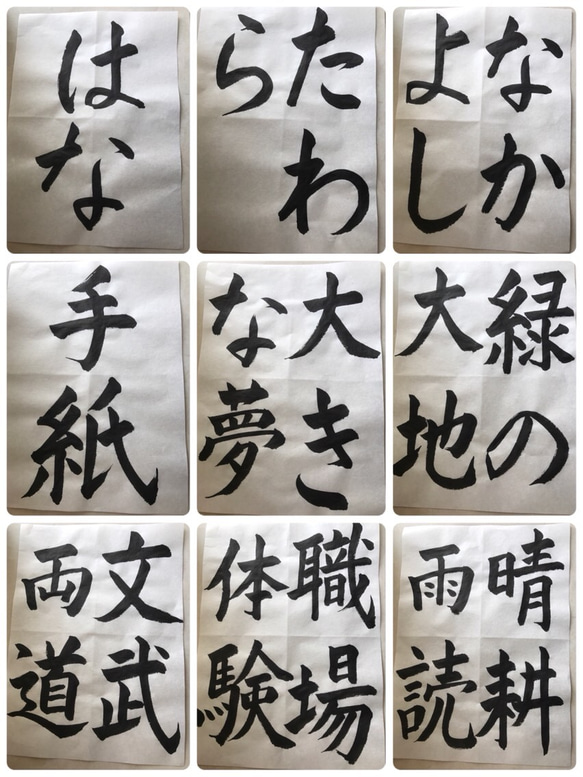 はな
たわ
ら
なか
よし
手紙
大き
な夢
緑の
大地
文武
両道
職場
体験
晴耕
雨読